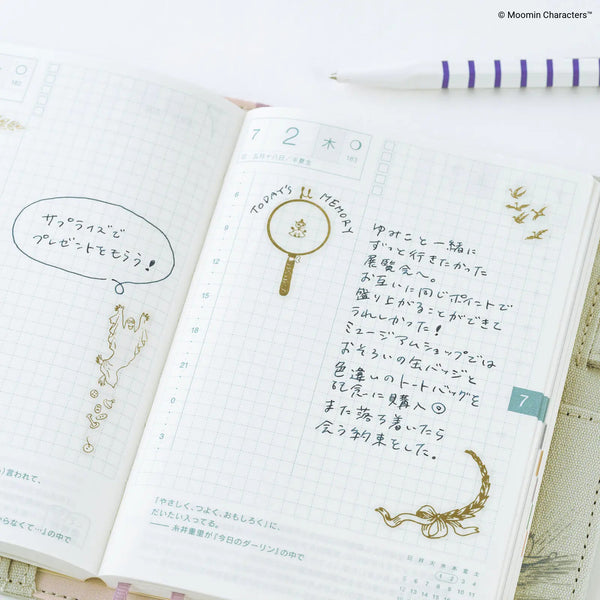 © Moomin Characters™
182
サプライズで
プレゼントをもらう!
言われて、
らなくて…』の中で
7 2 木
183
五月十八日/半夏生
TODAY'S MEMORY
6
9
12
15
18
21
0
3
ゆみこと一緒に
ずっと行きたかった
展覧会へ。
お互いに同じポイントで
盛り上がることができて
うれしかった!
ミュージアムショップでは
おそろいの缶バッジと
色違いのトートバッグを
記念に購入
また落ち着いたら
会う約束をした。
7
『やさしく、つよく、おもしろく』に、
だいたい入ってる。
――糸井重里が『今日のダーリン』の中で
日 月 火 水 木 金 土
1 2 3 4